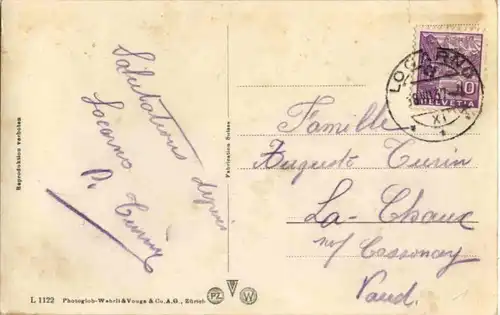 Reproduktion verboten
Salutations depuis
Locarno
P. Turin
Fabrication Suisse
LOCARNO
10
HELVETIA
XI
Famille
Auguste Turin
La-Chaux
s/ Cossonay
Vaud.
L 1122 Photoglob-Wehrli & Vouga & Co. A.G., Zürich
PZ
W